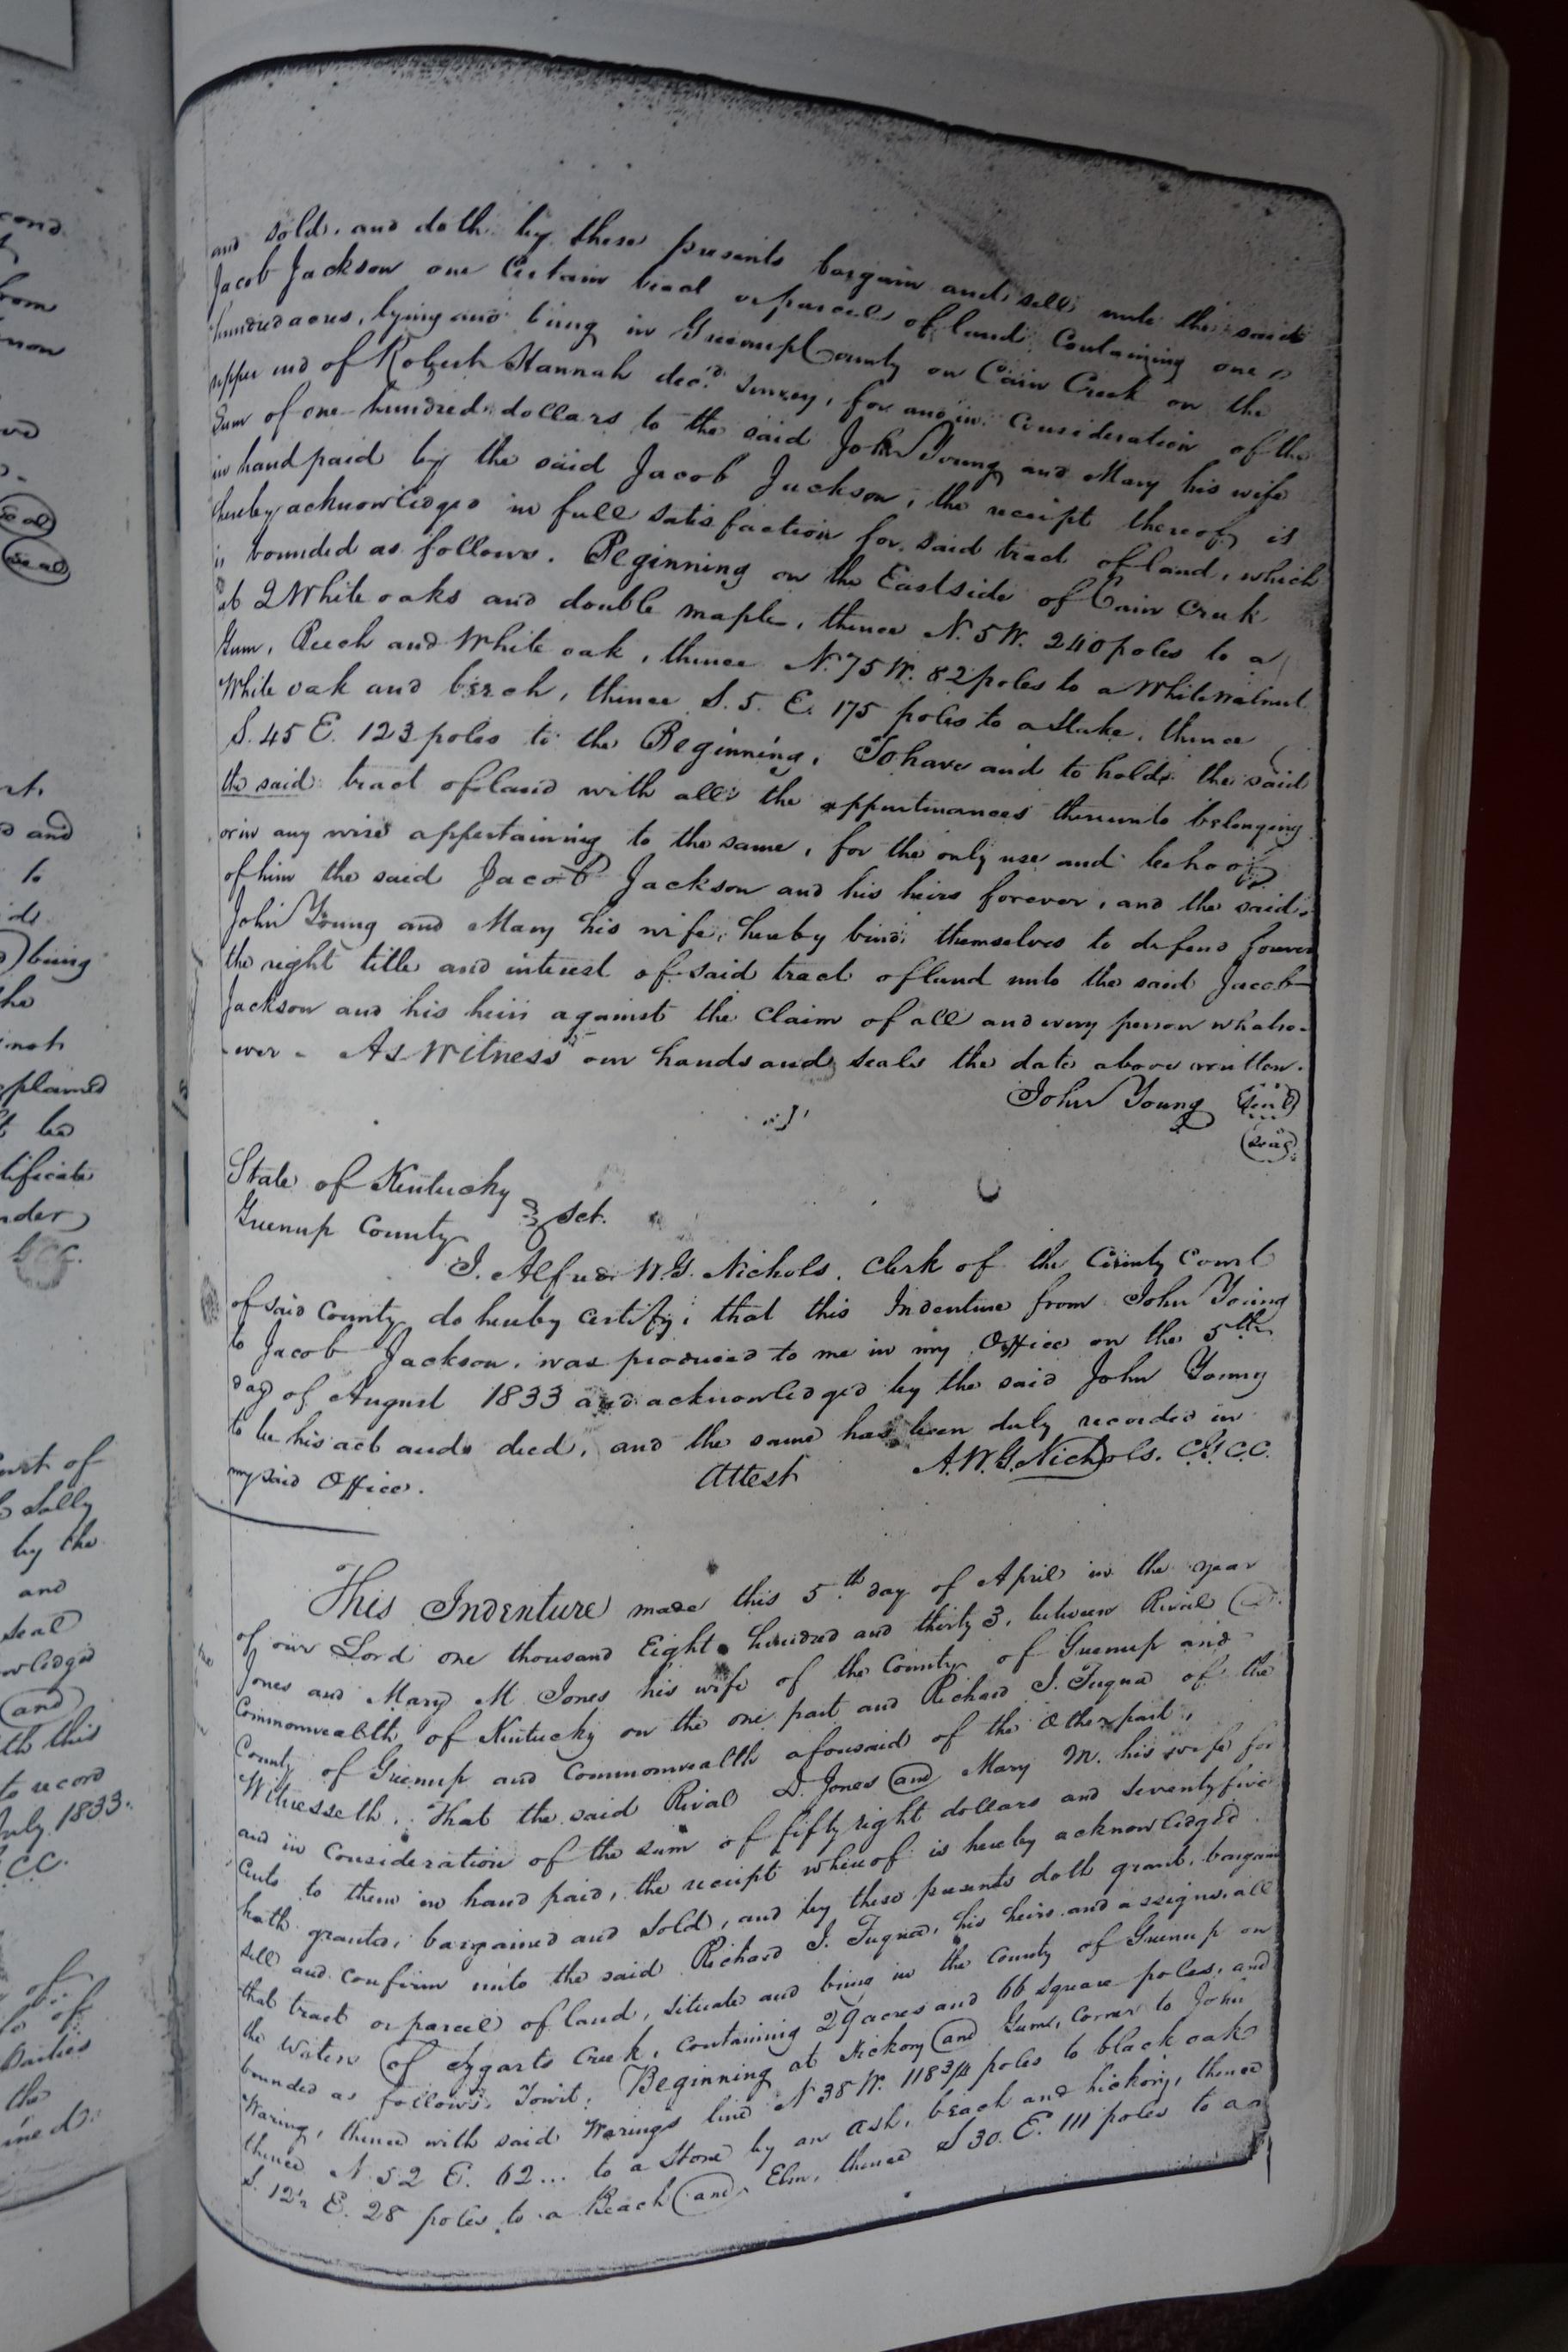 and sold, and doth by these presents bargain and sell unto the said
Jacob Jackson one Certain tract or parcel of land Containing one
hundred acres, lying and being in Greenup County on Cain Creek on the
upper end of Robert Hannah decd. survey, for and in Consideration of the
Sum of one hundred dollars to the said John Young and Mary his wife
in hand paid by the said Jacob Jackson, the receipt thereof is
hereby acknowledged in full satisfaction for said tract of land, which
is bounded as follows. Beginning on the East side of Cain Creek
at 2 White oaks and double maple, thence N. 5 W. 240 poles to a
Gum, Beech and White oak, thence N. 75 W. 82 poles to a White walnut
White oak and beech, thence S. 5. E. 175 poles to a Stake, thence
S. 45 E. 123 poles to the Beginning, To have and to hold the said
the said tract of land with all the appurtinances thereunto belonging
or in any wise appertaining to the same, for the only use and behoof
of him the said Jacob Jackson and his heirs forever, and the said
John Young and Mary his wife, hereby bind themselves to defend forever
the right title and interest of said tract of land unto the said Jacob
Jackson and his heirs against the Claim of all and every person whatso-
-ever - As Witness our hands and seals the date above written.
John Young (seal)
(seal)
State of Kentucky
Greenup County } Sct.
I. Alfred W. G. Nichols. Clerk of the County Court
of said County do hereby certify, that this Indenture from John Young
to Jacob Jackson, was produced to me in my Office on the 5th
day of August 1833 and acknowledged by the said John Young
to be his act and deed, and the same has been duly recorded in
my said Office. Attest A. W. G. Nichols. C.G.C.C.
This Indenture made this 5th day of April in the year
of our Lord one thousand Eight hundred and thirty 3, between Rival D.
Jones and Mary M Jones his wife of the County of Greenup and
Commonwealth of Kentucky on the one part and Richard I. Fuqua of the
County of Greenup and Commonwealth aforesaid of the Other part,
Witnesseth. That the said Rival D. Jones (and) Mary M. his wife for
and in Consideration of the sum of fifty eight dollars and seventy five
Cents to them in hand paid, the receipt whereof is hereby acknowledged
hath granted, bargained and Sold, and by these presents doth grant, bargain
sell and confirm unto the said Richard I. Fuqua, his heirs and assigns, all
that tract or parcel of land, situate and being in the County of Greenup on
the Waters of Tygarts Creek, Containing 29 acres and 66 square poles, and
bounded as follows, Towit; Beginning at Hickory (and) Gum, Corner to John
Waring, thence with said Warings line N 38 W. 118 3/4 poles to black oak
thence N. 52 E. 62... to a Stone by an ash, beach and hickory, thence
S. 12½ E. 28 poles to a Beach (and) Elm, thence S 30. E. 111 poles to an